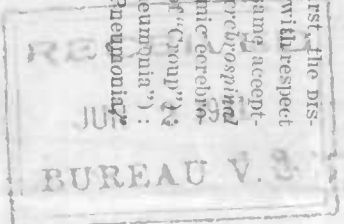 rst, the DIS-
with respect
same accept-
rebrospinal
nic cerebro-
"Croup");
eumonia"):
Pneumonia,
RECEIVED
JUN 2
BUREAU V.